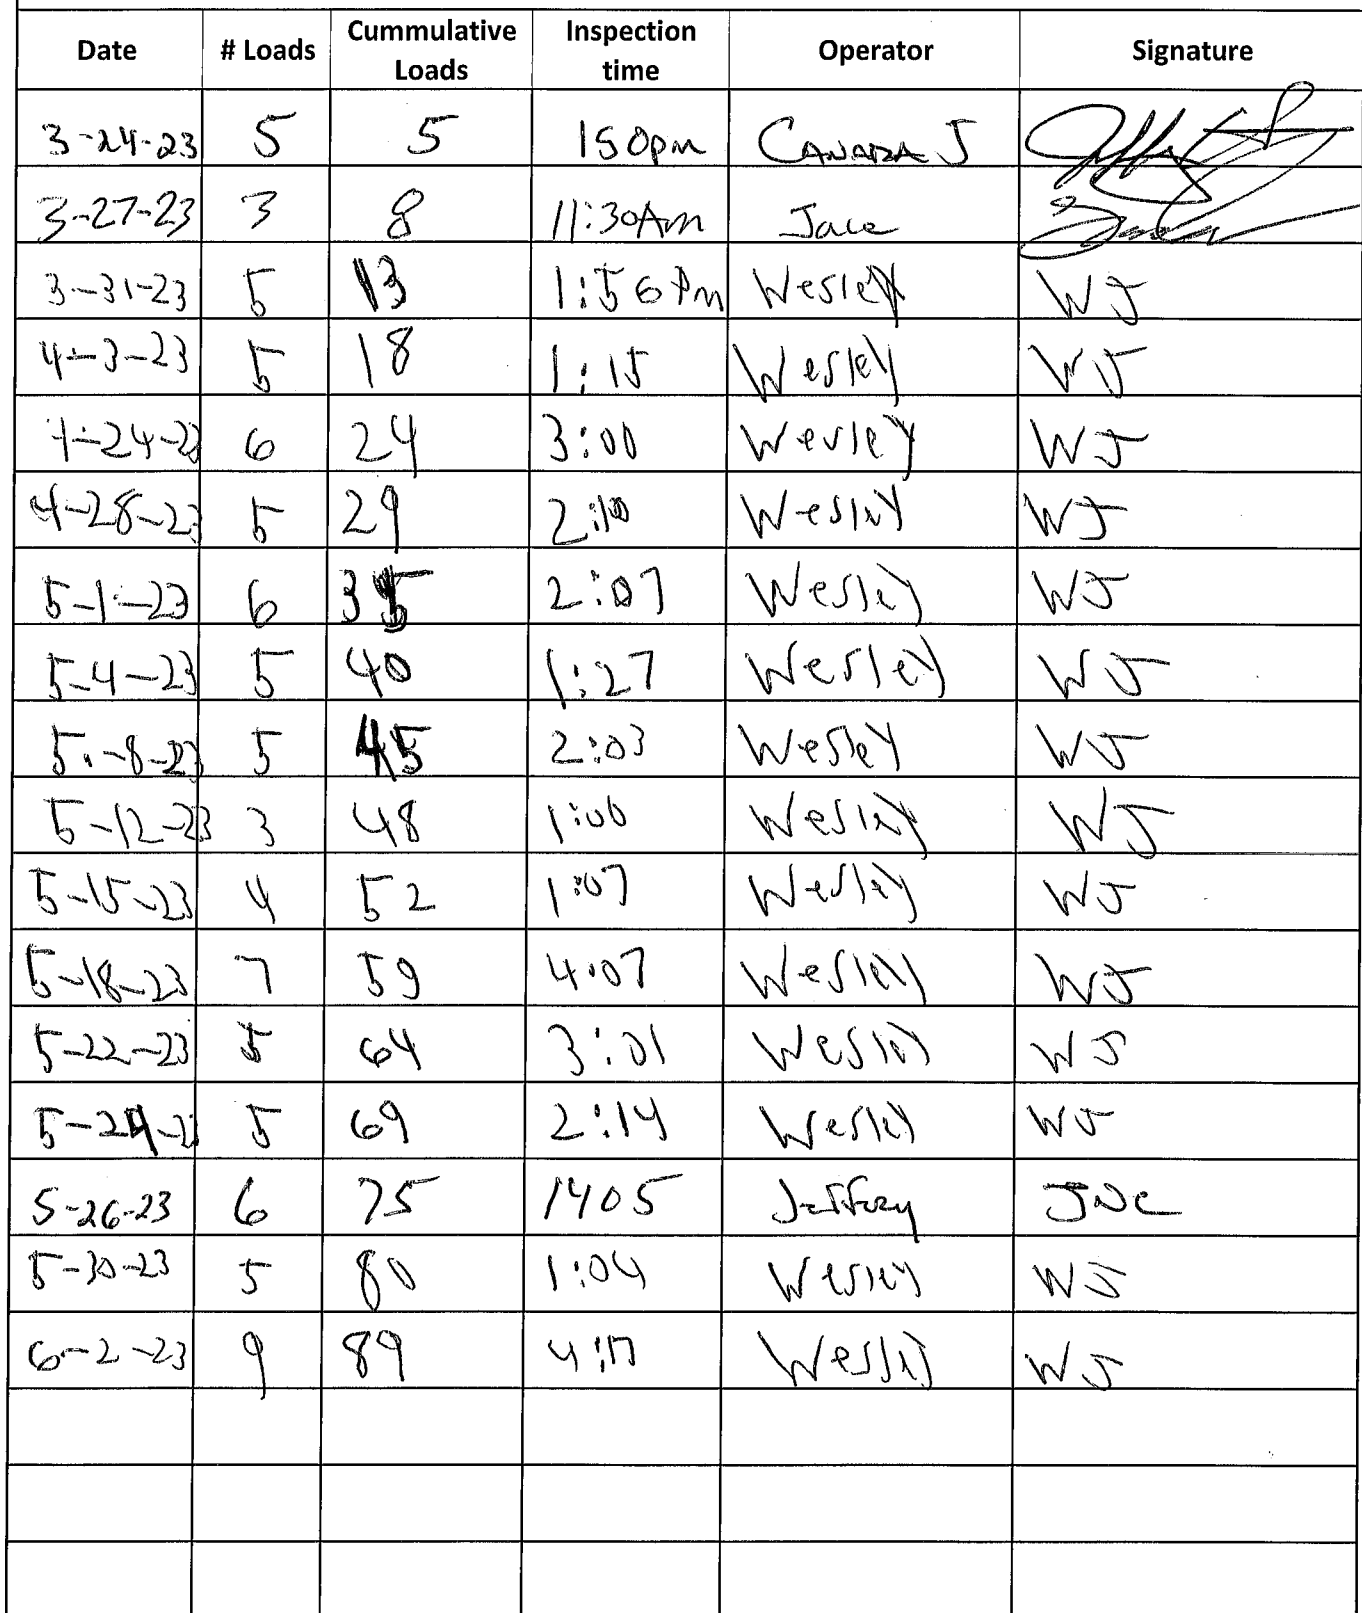 Date # Loads Cummulative Loads Inspection time Operator Signature
3-24-23 5 5 150pm CANADA J
3-27-23 3 8 11:30Am Jace
3-31-23 5 13 1:56 Pm Wesley WJ
4-3-23 5 18 1:15 Wesley WJ
4-24-23 6 24 3:00 Wesley WJ
4-28-23 5 29 2:10 Wesley WJ
5-1-23 6 35 2:07 Wesley WJ
5-4-23 5 40 1:27 Wesley WJ
5-8-23 5 45 2:03 Wesley WJ
5-12-23 3 48 1:00 Wesley WJ
5-15-23 4 52 1:07 Wesley WJ
5-18-23 7 59 4:07 Wesley WJ
5-22-23 5 64 3:01 Wesley WJ
5-24-23 5 69 2:14 Wesley WJ
5-26-23 6 75 1405 Jeffery JNC
5-30-23 5 80 1:04 Wesley WJ
6-2-23 9 89 4:17 Wesley WJ